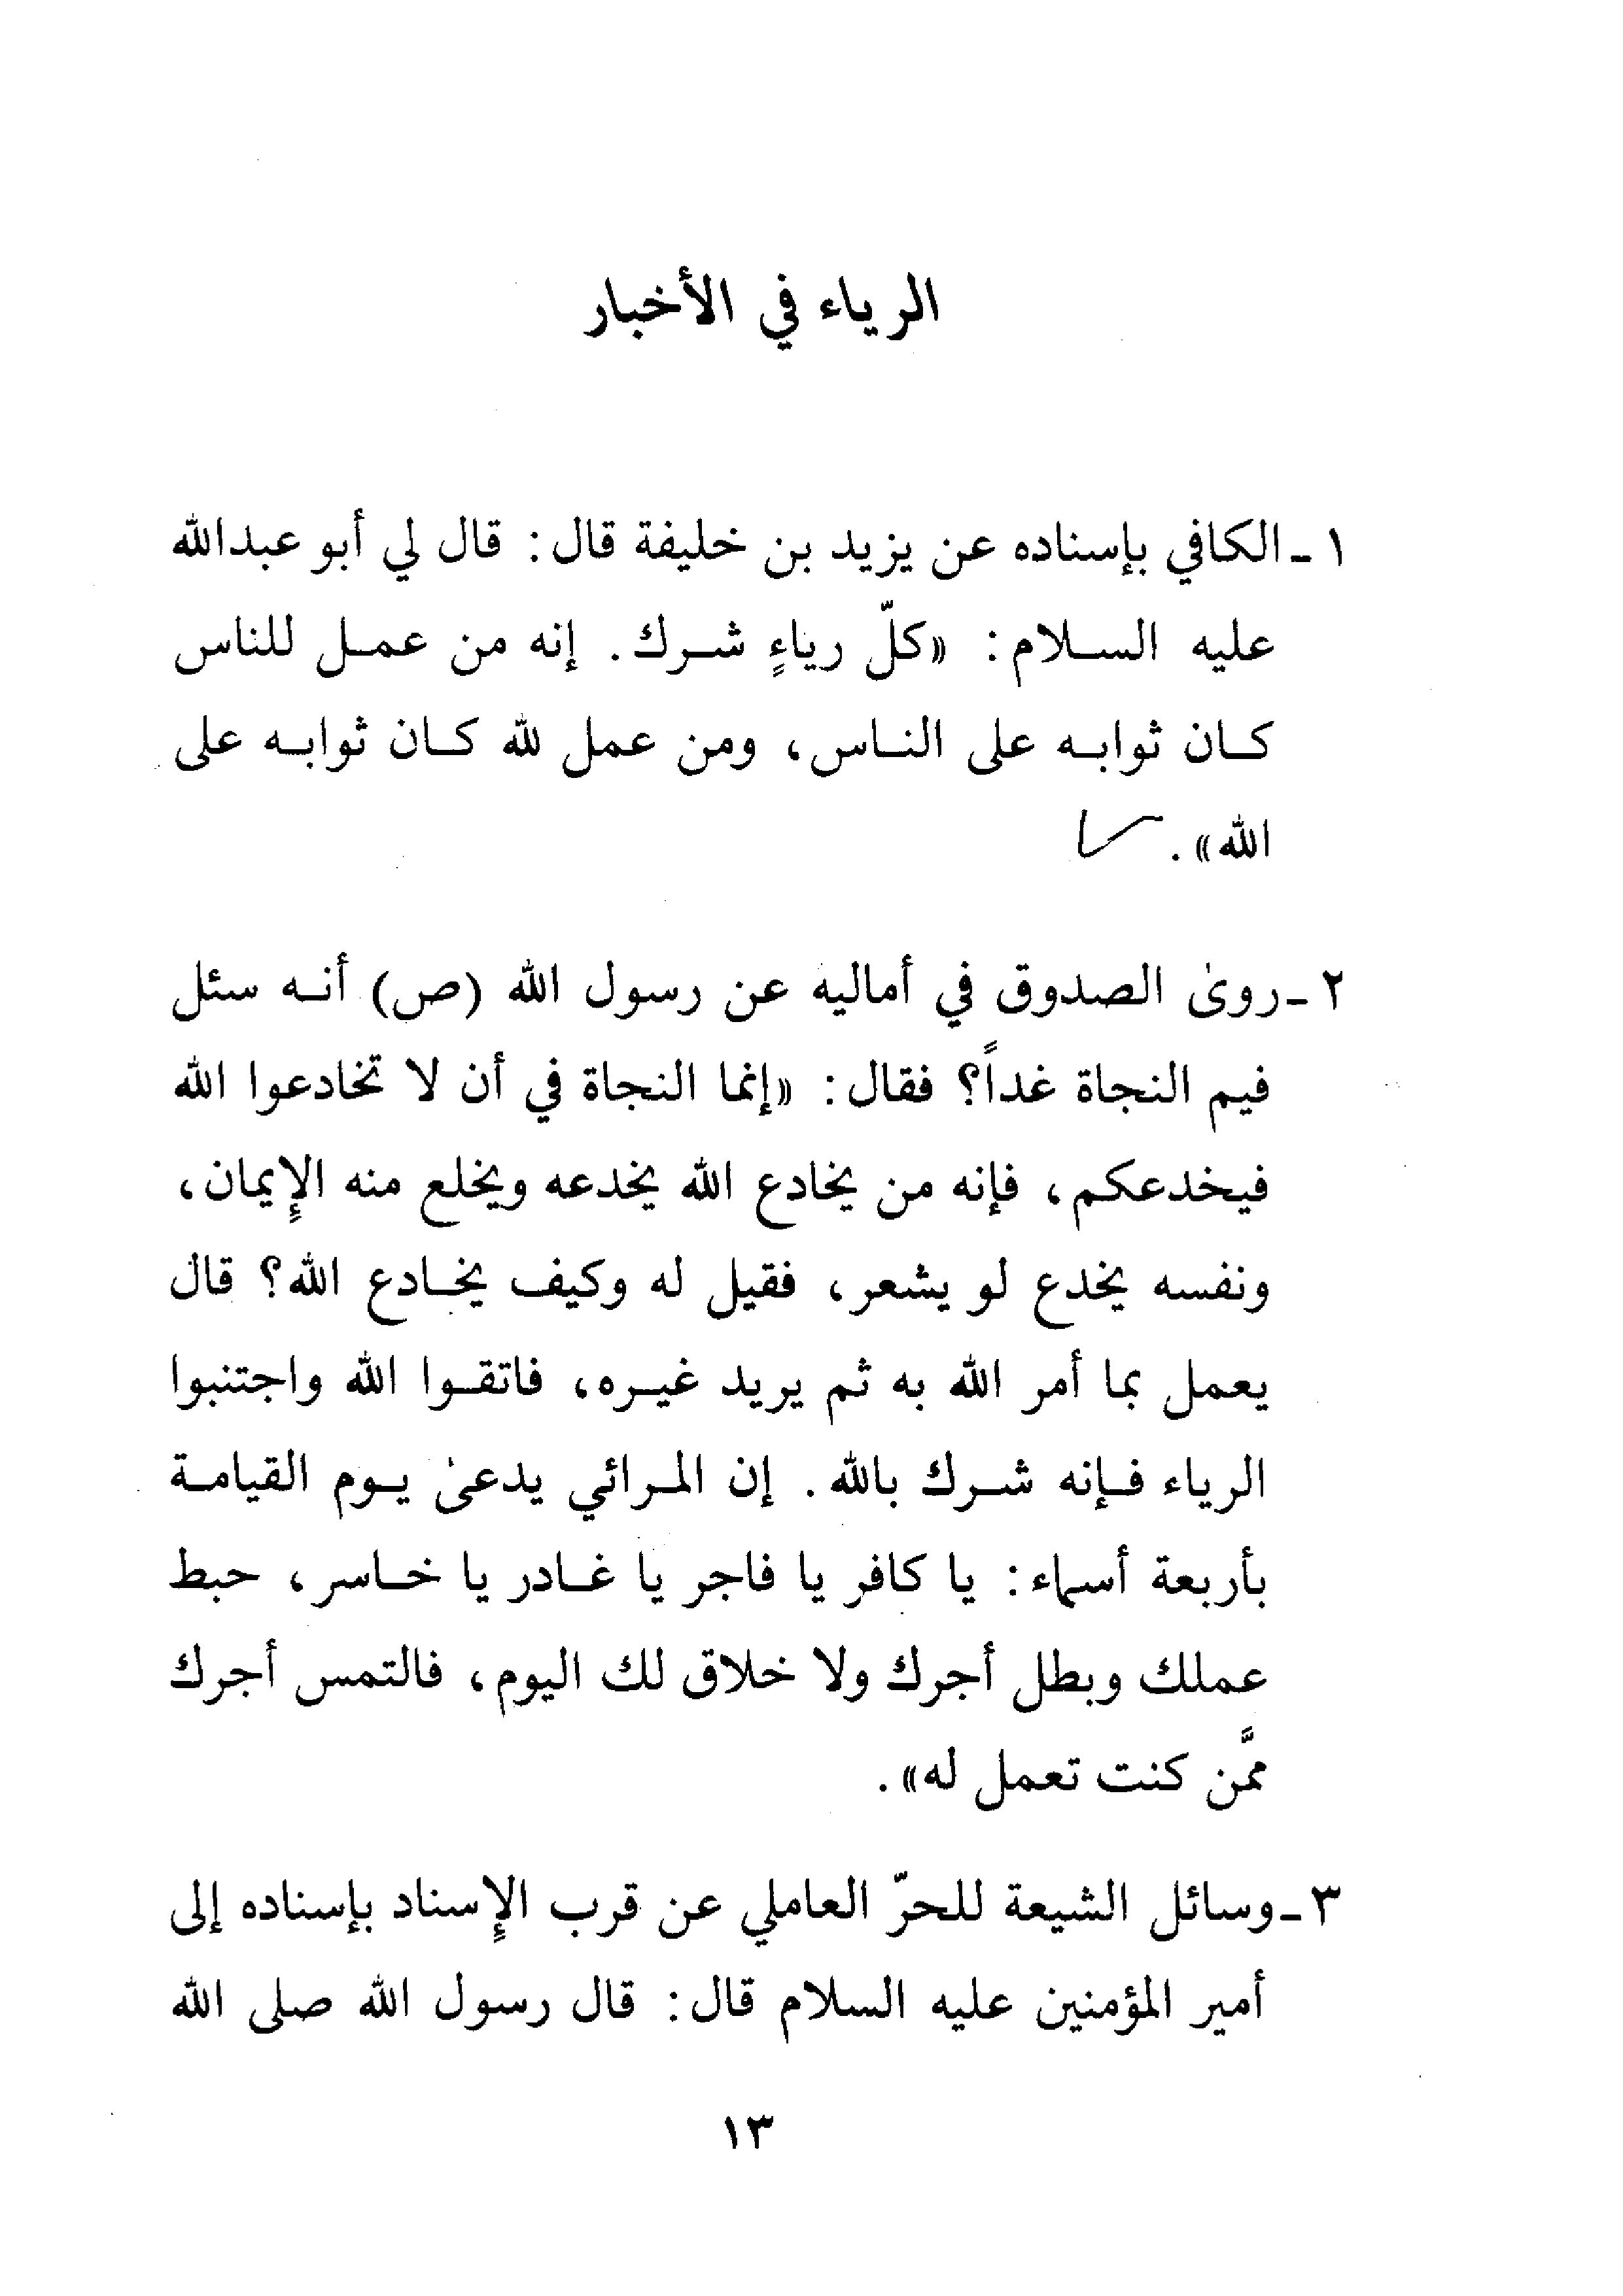 الرياء في الأخبار
١ - الكافي بإسناده عن يزيد بن خليفة قال: قال لي أبو عبدالله
عليه السلام: «كلّ رياءٍ شرك. إنه من عمل للناس
كان ثوابه على الناس، ومن عمل لله كان ثوابه على
الله».
٢ - روىٰ الصدوق في أماليه عن رسول الله (ص) أنه سئل
فيم النجاة غداً؟ فقال: «إنما النجاة في أن لا تخادعوا الله
فيخدعكم، فإنه من يخادع الله يخدعه ويخلع منه الإيمان،
ونفسه يخدع لو يشعر، فقيل له وكيف يخادع الله؟ قال
يعمل بما أمر الله به ثم يريد غيره، فاتقوا الله واجتنبوا
الرياء فإنه شرك بالله. إن المرائي يدعىٰ يوم القيامة
بأربعة أسماء: يا كافر يا فاجر يا غادر يا خاسر، حبط
عملك وبطل أجرك ولا خلاق لك اليوم، فالتمس أجرك
ممَّن كنت تعمل له».
٣ - وسائل الشيعة للحرّ العاملي عن قرب الإسناد بإسناده إلى
أمير المؤمنين عليه السلام قال: قال رسول الله صلى الله
١٣